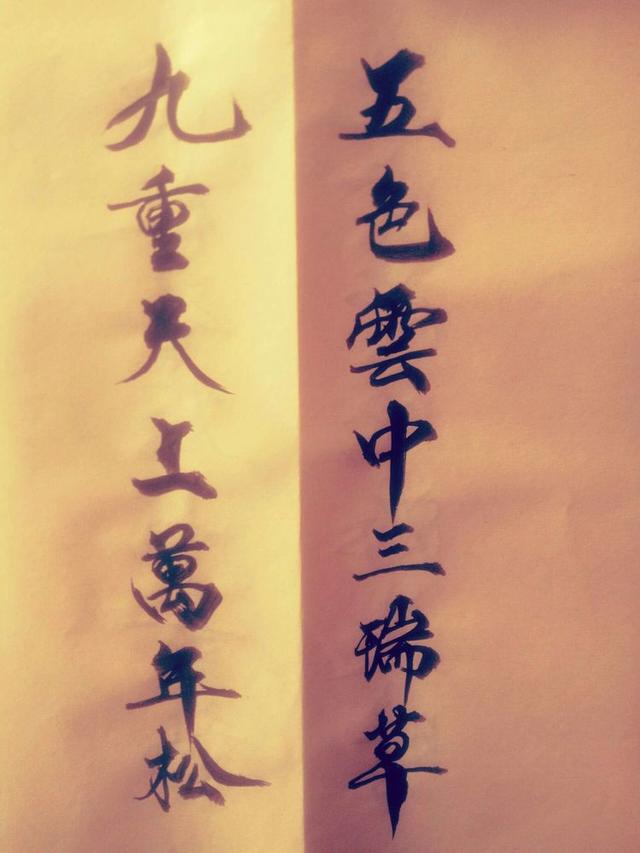 五色雲中三瑞草
九重天上萬年松